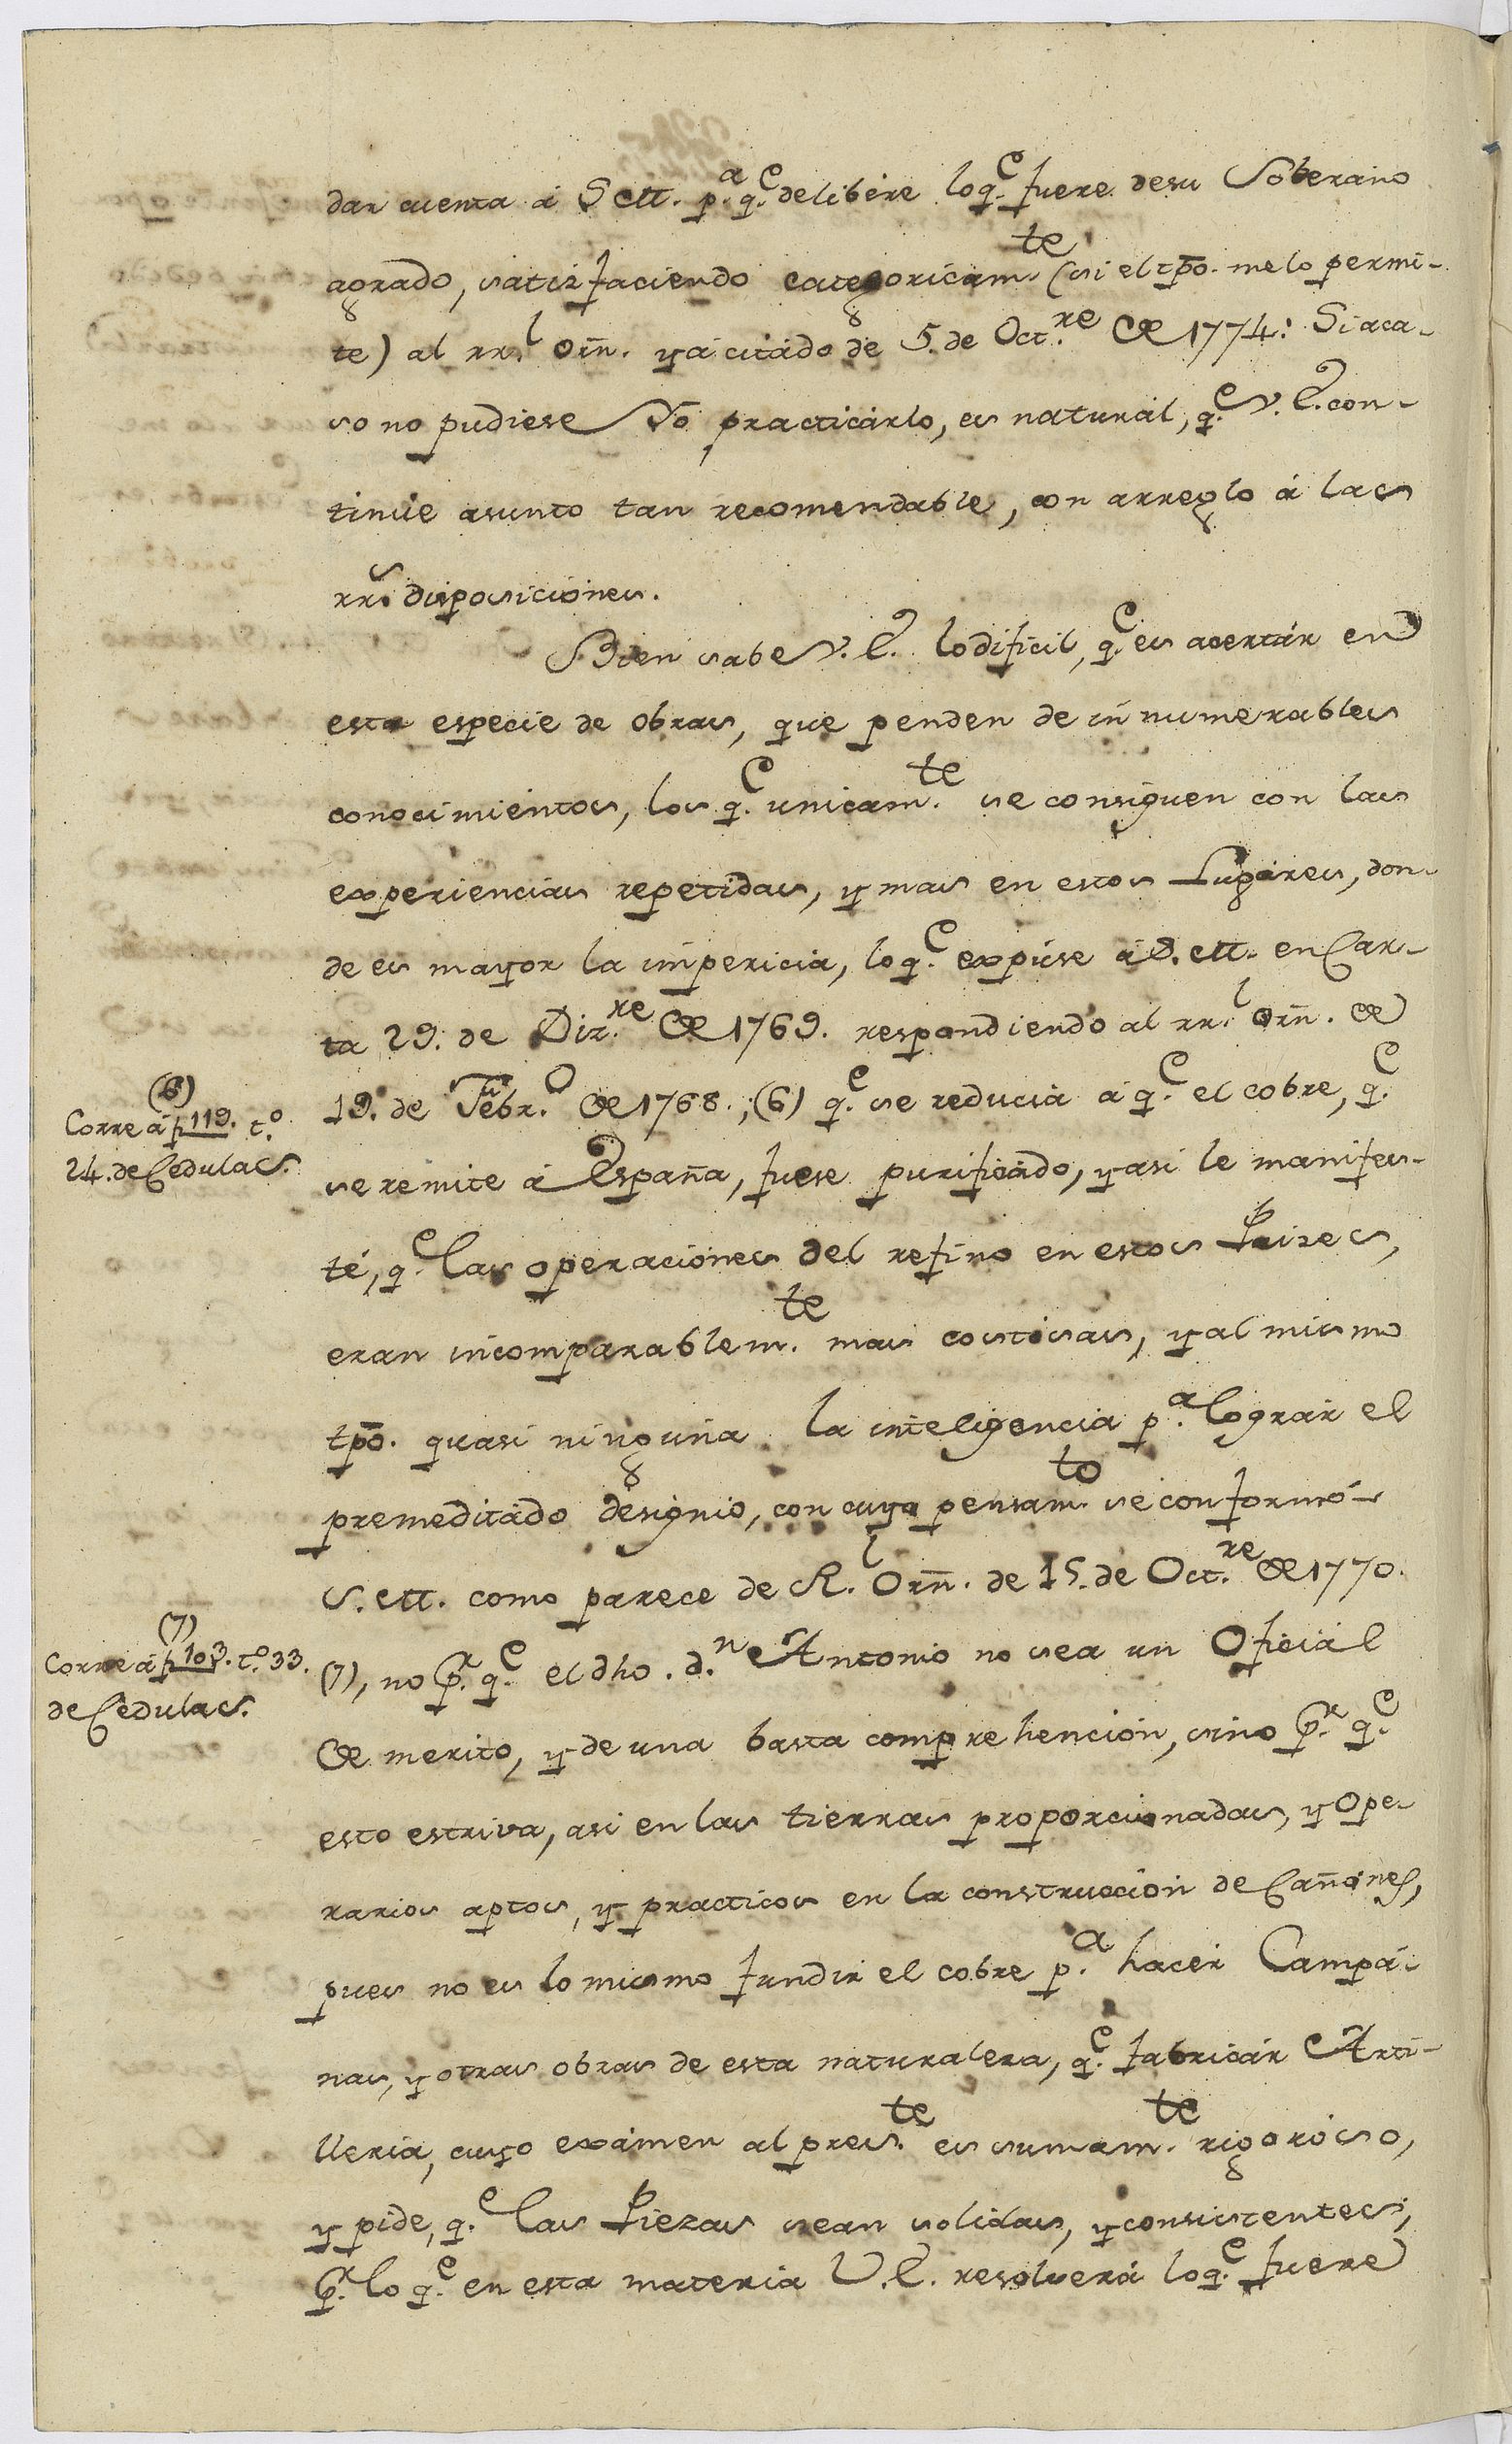 dar cuenta á S. M. p.ª q.e delibére loq.e fuere desu Soberano
agrado, satisfaciendo categoricam.te (si el tpō. melo permi-
te) al rr.l orñ. yá citádo de 5. de Oct.re de 1774: Si aca-
so no pudiese Yó practicárlo, es naturál, q.e V. E. con-
tinúe asunto tan recomendable, con arreglo á las
rr.s disposiciones.
Bien sabe V. E. lo dificil, q.e es acertár en
esta especie de obras, que penden de innumerables
conocimientos, los q.e unicam.te se consiguen con las
experiencias repetidas, y mas en estos Lugáres, don-
de es mayor la impericia, lo q.e expúse á S. M. en Car-
ta 29. de Diz.re de 1769. respondiendo al rr.l orñ. de
19. de Febr.o de 1768.; (6) q.e se reducia á q.e el cobre, q.e
se remite á España, fuese purificádo, y asi le manifes-
té, q.e las operaciónes del refino en estos Paizes,
eran incomparablem.te mas costósas, y al mismo
tpō. quasi ningúna la inteligencia p.ª lográr el
premeditádo designio, con cuyo pensam.to se conformó
S. M. como parece de R.l Orñ. de 15. de Oct.re de 1770.
(7), no p.r q.e el dho. d.n Antonio no sea un Oficiál
de merito, y de una basta comprehención, sino p.r q.e
esto estriva, asi en las tierras proporcionadas, y Ope-
rarios aptos, y practicos en la construccion de Cañones,
pues no es lo mismo fundir el cobre p.ª hacér Campá-
nas, y otras obras de esta naturaleza, q.e fabricár Arti-
lleria, cuyo exámen al pres.te es sumam.te rigoróso,
y pide, q.e las Piezas sean solidas, y consistentes;
p.r lo q.e en esta materia V. E. resolverá loq.e fuere
(6)
Corre á f 119. t.o
24. de Cedulas.
(7)
Corre á f 103. t.o 33.
de Cedulas.